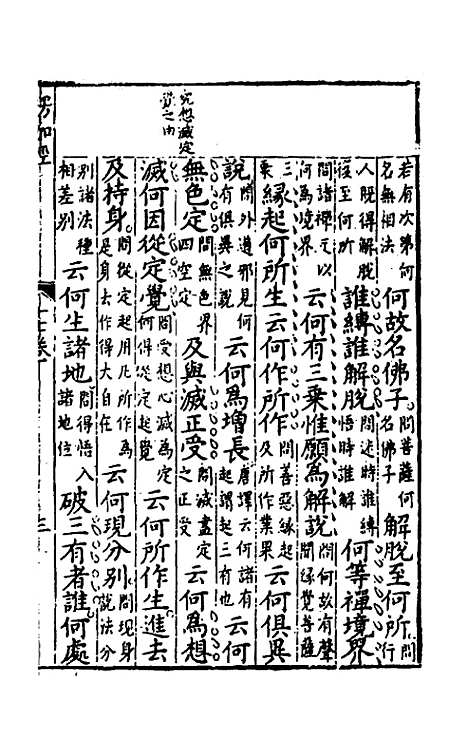 究想滅定
覺之由
若有次第何
名無相法
何故名佛子
問菩薩何
名佛子
解脫至何所
問
行
人既得解脫
後至何所
誰縛誰解脫
問迷時誰縛
悟時誰解
何等禪境界
問諸禪定以
何為境界
云何有三乘惟願為解說
問何故有聲
聞緣覺菩薩
三
乘
緣起何所生云何作所作
問善惡緣起
及所作業果
云何俱異
說
問外道邪見何
有俱異之說
云何為增長
唐譯云何諸有
起謂起三有也
云何
無色定
問無色界
四空定
及與滅正受
問滅盡定
之正受
云何為想
滅何因從定覺
問受想心滅為定
何得從定起覺
云何所作生進去
及持身
問從定起用凡所作為
是身去作得大自在
云何現分別
問現身
說法分
別諸法種
相差別
云何生諸地
問得悟入
諸地位
破三有者誰何處
楞伽經
卷
三